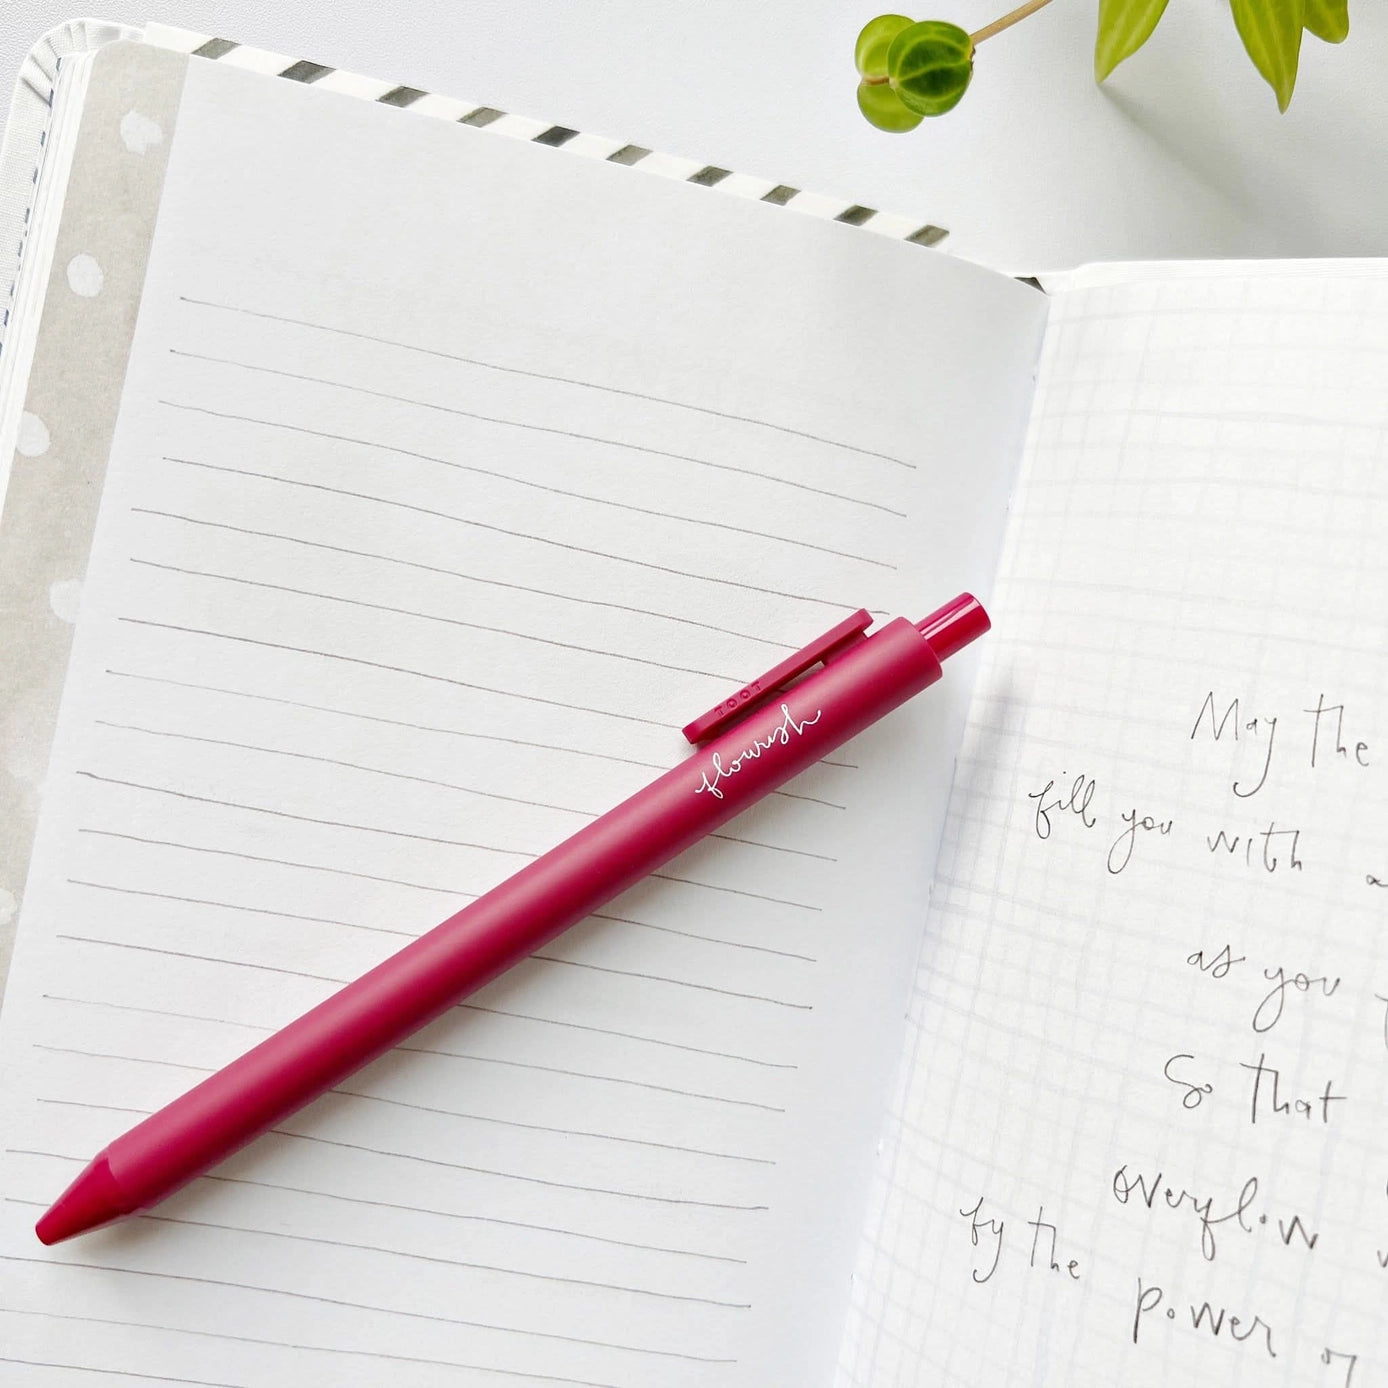 TOOT
flourish
May the
fill you with
as you
So that
overflow
by the
power